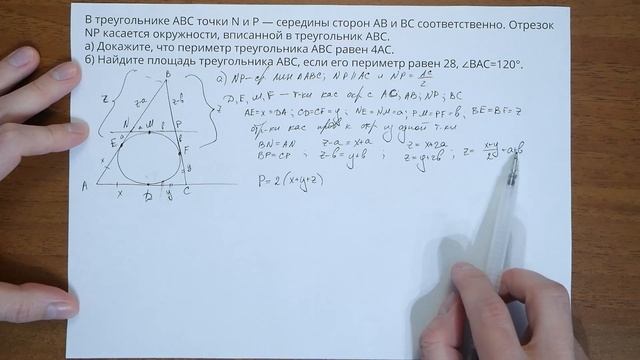 В треугольнике ABC точки N и P — середины сторон AB и BC соответственно. Отрезок
NP касается окружности, вписанной в треугольник ABC.
а) Докажите, что периметр треугольника ABC равен 4AC.
б) Найдите площадь треугольника ABC, если его периметр равен 28, ∠BAC=120°.
а) NP - ср. лин ΔABC; NP ∥ AC и NP = AC/2
D, E, M, F - т-ки кас окр с AC; AB; NP; BC
AE = x = DA; CD = CF = y; NE = NM = a; PM = PF = b; BE = BF = z
отр-ки кас к окр из одной т-ки
BN = AN z-a = x+a z = x+2a
BP = CP; z-b = y+b; z = y+2b; z = x+y/2 + a+b
P = 2(x+y+z)
B
z-a z-b
z z
N a M b P
a b
E F
x y
A x D y C